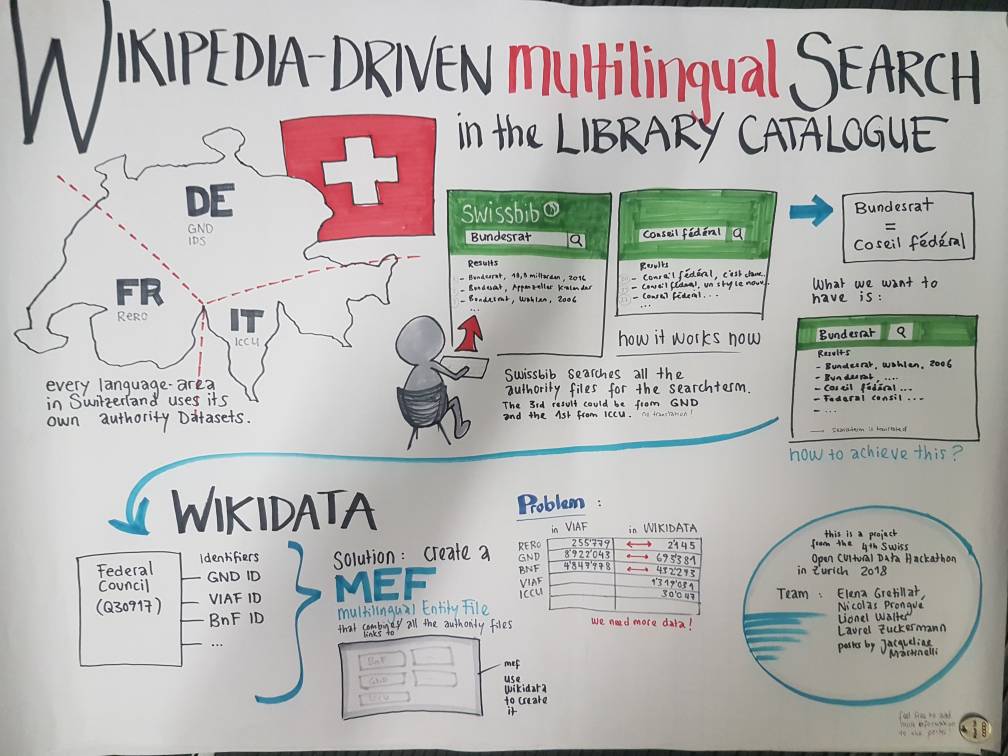 WIKIPEDIA-DRIVEN multilingual SEARCH
in the LIBRARY CATALOGUE
DE
GND
IDS
FR
RERO
IT
ICCU
every language-area
in Switzerland uses its
own authority Datasets.
Swissbib
Bundesrat
Results
- Bundesrat, 2016
- Bundesrat, Appenzeller Kalender
- Bundesrat, Wahlen, 2006
...
Conseil fédéral
Results
- Conseil fédéral, c'est
- Conseil fédéral, un style
- Conseil féderal...
...
how it works now
Swissbib searches all the
authority files for the searchterm.
The 3rd result could be from GND
and the 1st from ICCU. no translation!
Bundesrat
=
Coseil fédéral
What we want to
have is:
Bundesrat
Results
- Bundesrat, Wahlen, 2006
- Bundesrat, ....
- Coseil fédéral...
- Federal consil...
- ...
Searchterm is translated
how to achieve this?
WIKIDATA
Federal
Council
(Q30917)
Identifiers
GND ID
VIAF ID
BnF ID
...
Solution: create a
MEF
multilingual Entity File
that combines/ all the authority files
links to
BnF
GND
ICCU
mef
use
Wikidata
to create
it
Problem:
in VIAF in WIKIDATA
RERO 255'779 2'145
GND 8'922'043
BNF
VIAF
ICCU 30'047
we need more data!
this is a project
from the 4th Swiss
Open Cultural Data Hackathon
in Zurich 2018
Team: Elena Gretillat,
Nicolas Prongué
Lionel Walter
Laurel Zuckermann
posts by Jacqueline
Martinelli
feel free to add
more information
to the posts!